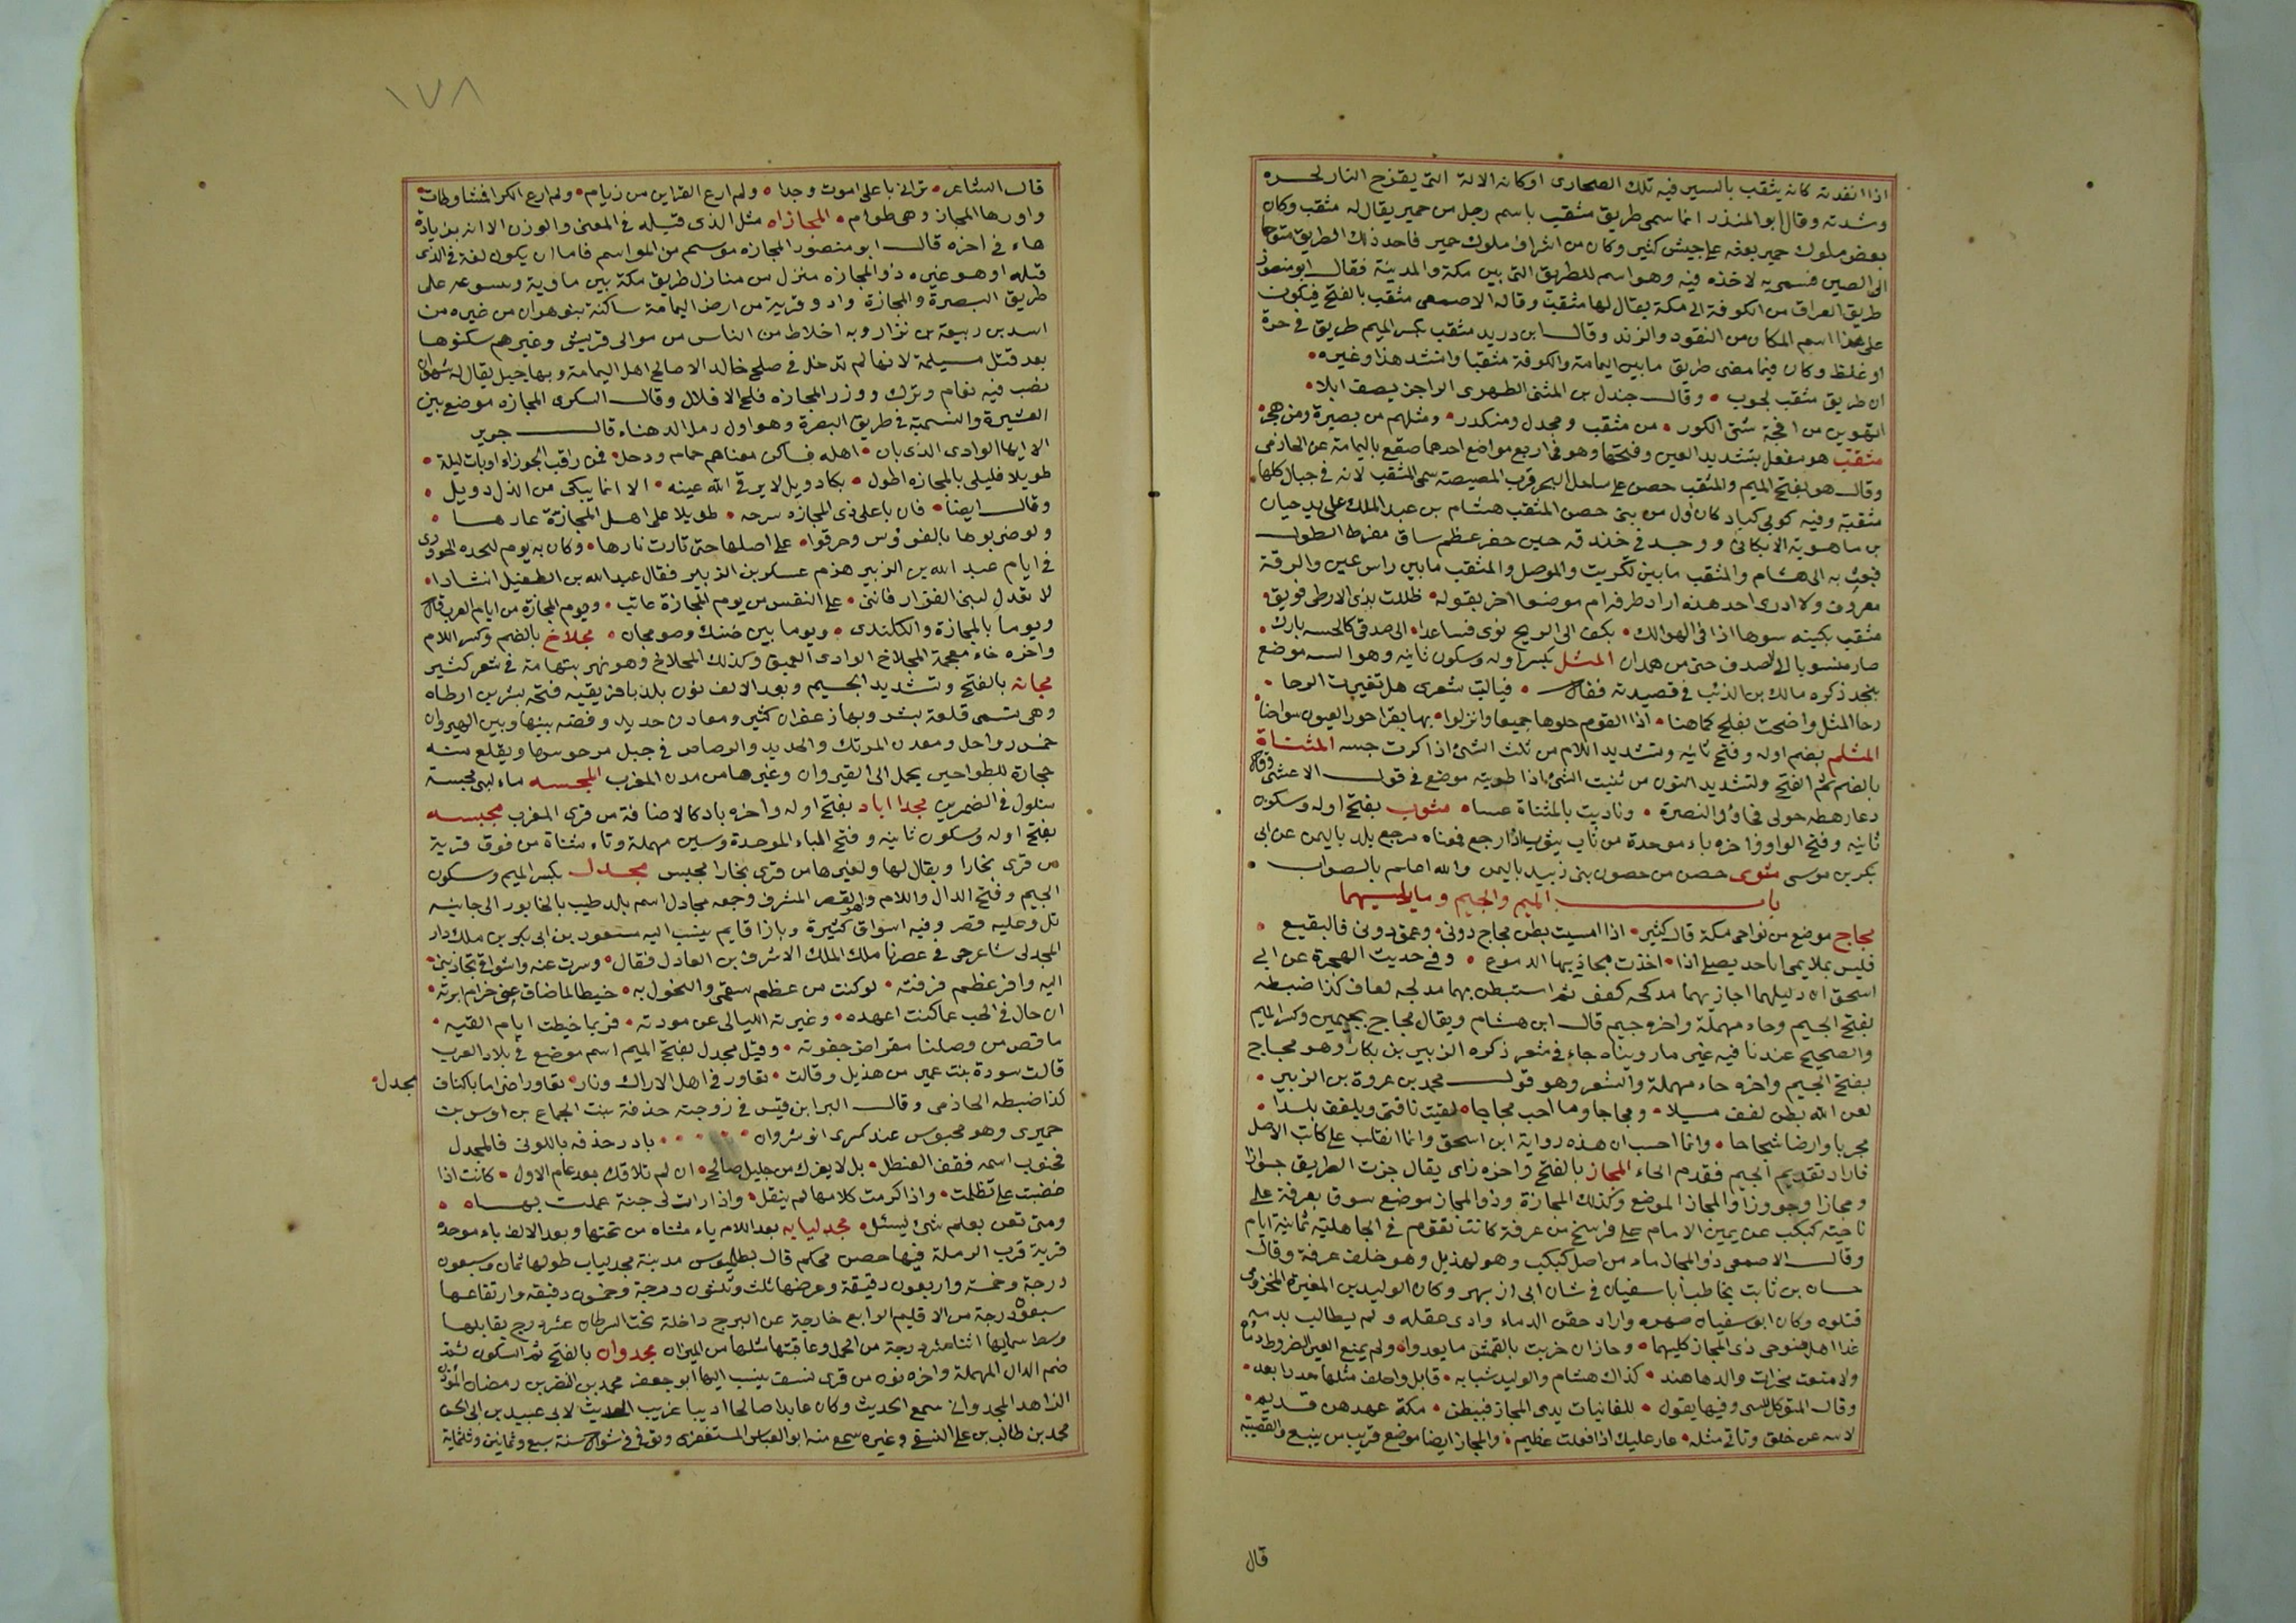 اذا انفدته كانه يثقب بالسير فيه تلك الصحارى او كانه الالة التى يقدح النار لحره
وشدته وقال ابو المنذر انما سمى طريق مثقب باسم رجل من حمير يقال له مثقب وكان
بعض ملوك حمير بعثه على جيش كثير وكان من اشراف ملوك حمير فاخذ ذلك الطريق متوجها
الى الصين فسمى به لاخذه فيه وهو اسم للطريق التى بين مكة والمدينة فقال ابو منصور
طريق العراق من الكوفة الى مكة يقال لها مثقب وقال الاصمعى مثقب بالفتح فيكون
على هذا اسم المكان من النقود والزند وقال ابن دريد مثقب بكسر الميم طريق فى حرة
او غلظ وكان فيما مضى طريق ما بين اليمامة والكوفة مثقبا وانشد هذا وغيره
ان طريق مثقب لحوب وقال جندل بن المثنى الطهوى الراجز يصف ابلا
من مثقب ومجدل ومنكدر ومثلهم من بصيرة ومن هجر
مثقب هو مفعل بتشديد العين وفتحها وهو فى اربع مواضع احدها صقع باليمامة عن الحازمى
وقال هو بفتح الميم والمثقب حصن على ساحل البحر قرب المصيصة سمى المثقب لانه فى جبال كلها
مثقبة وفيه كوى كبار كان اول من بنى حصن المثقب هشام بن عبد الملك على يد حسان
بن ماهوية الانطاكى ووجد فى خندقه حين حفر عظم ساق مفرط الطول
فبعث به الى هشام والمثقب ما بين تكريت والموصل والمثقب ما بين راس عين والرقة
معروف ولا ادرى احد هذه اراد طرفه ام موضعا اخر بقوله ظللت بذى الارطى فويق
مثقب بكينه سوها اذا فى الهوالك بكف الى الريح ثوى فساعدا الى صدفى كالحسه بارك
صار منسوبا الى الصدف حتى من همدان المثل بكسر اوله وسكون ثانيه وهو اسم موضع
بنجد ذكره مالك بن الذئب فى قصيدته فقال فياليت شعرى هل تغيرت الرحا
رحا المثل واضحت بفلج كما هنا اذا القوم حلوها جميعا وانزلوا بها بقرا حور العيون سواجنا
المثلم بضم اوله وفتح ثانيه وتشديد اللام من ثلث الشئ اذا كرت جسه المثناة
بالضم ثم الفتح وتشديد النون من ثنيت الشئ اذا طويته موضع فى قول الاعشى
دعا رهطه حولى فجاؤا لنصره وناديت بالمثناة عسا مثوب بفتح اوله وسكون
ثانيه وفتح الواو واخره باء موحدة من ثاب يثوب اذا رجع فمعناه مرجع بلد باليمن عن ابى
بكر بن موسى مثوى حصن من حصون بنى زبيد باليمن والله اعلم بالصواب
باب الميم والجيم وما يليهما
مجاج موضع من نواحى مكة قال كثير اذا امسيت بطن مجاج دونى وعمق دونى فالبقيع
فليس بملايمى احد يصلى اذا اخذت مجاذيبها الدموع وفى حديث الهجرة عن ابى
اسحق ان دليلهما اجاز بهما مدلجة لقف ثم استبطن بهما مدلجه لعاف كذا ضبطه
بفتح الجيم وحاء مهملة واخره جيم قال ابن هشام ويقال مجاج بجيمين وكسر الميم
والصحيح عندنا فيه غير ما رويناه جاء فى شعر ذكره الزبير بن بكار وهو مجاح
بفتح الجيم واخره حاء مهملة والشعر وهو قول محمد بن عروة بن الزبير
لعن الله بطن لقف مسيلا ومجاحا وما احب مجاحا لقيت ناقتى وبلقف بلدا
مجربا وارضا شحاحا وانما احسب ان هذه رواية ابن اسحق وانما انقلب على كاتب الاصل
فاراد تقديم الجيم فقدم الحاء المجاز بالفتح واخره زاى يقال جزت الطريق جوازا
ومجازا وجووزا والمجاز الموضع وكذلك المجازة وذو المجاز موضع سوق بعرفة على
ناحيته كبكب عن يمين الامام على فرسخ من عرفة كانت تقوم فى الجاهلية ثمانية ايام
وقال الاصمعى ذو المجاز ماء من اصل كبكب وهو لهذيل وهو خلف عرفة وقال
حسان بن ثابت يخاطب ابا سفيان فى شان ابى ازيهر وكان الوليد بن المغيرة المخزومى
قتلوه وكان ابو سفيان صهره واراد حقن الدماء وادى عقله ولم يطالب بدمه
غدا اهل ضوجى ذى المجاز كليهما وجاز ابن حرب بالمغمس ما يغدوا ولم يمنع العير الضروط ذماره
ولا منعت مخزاة والدها هند كذاك هشام والوليد ثيابه فابل واخلف مثلها جددا بعد
وقال المتوكل الليثى وفيها يقول للغانيات بذى المجاز فببطن مكة عهدهن قديم
لا تنه عن خلق وتاتى مثله عار عليك اذا فعلت عظيم والمجاز ايضا موضع قريب من ينبع والقصيبة
قال
١٧٨
قال الشاعر ترانى يا على اموت وجدا ولم ارع القراين من زيام ولم ارع الكرا فمشاوطات
واورها المجاز وهى طوام المجازاه مثل الذى قبله فى المعنى والوزن الا انه بزيادة
هاء فى اخره قال ابو منصور المجازه موسم من المواسم فاما ان يكون لغة فى الذى
قبله او هو غيره ذو المجازه منزل من منازل طريق مكة بين ماوية وينسوعه على
طريق البصرة والمجازة واد وقرية من ارض اليمامة ساكنة بنو هوان من عنزه من
اسد بن ربيعة بن نزار وبه اخلاط من الناس من موالى قريش وغيرهم سكنوها
بعد قتل مسيلمة لانها لم تدخل فى صلح خالد لما صالح اهل اليمامة وبها جبل يقال له شهوان
يصب فيه نغام وبرك ووزر المجازه فلج الافلاج وقال السكرى المجازه موضع بين
العشيرة والسمية فى طريق البصرة وهو اول رمل الدهناء قال جرير
الا ايها الوادى الذى بان اهله فساكن مغناهم حمام ودخل فمن راقب الجوزاء او بات ليله
طويلا فليلى بالمجازه اطول بكا دويل لا يرقى الله عينه الا انما يبكى من الذل دويل
وقال ايضا فان باعلى ذى المجازه سرحه طويلا على اهل المجازة عارها
ولو ضربوها بالفووس وحرقوا على اصلها حتى تارت نارها وكان به يوم لنجده الحرورى
فى ايام عبد الله بن الزبير هزم عسكر بن الزبير فقال عبد الله بن الطفيل انشادا
لا تعدل لبنى الفرار فاننى على النفس من يوم المجازة عاتب ويوم المجازة من ايام العرب قال
ويوما بالمجازة والكلندى ويوما بين ضنك وصومحان مجلاخ بالضم وكسر اللام
واخره خاء معجمة المجلاخ الوادى العميق وكذلك المجلاخ وهو نهر بتهامة فى شعر كثير
مجانه بالفتح وتشديد الجيم وبعد الالف نون بلد بافريقيه فتحه بشر بن ارطاه
وهى تسمى قلعة بشر وبها زعفران كثير ومعادن حديد وفضه بينها وبين القيروان
خمس رواحل ومعدن المرتك والحديد والرصاص فى جبل من جوسها ويقلع منه
حجارة للطواحين يحمل الى القيروان وغيرها من مدن المغرب المجسه ماء لبنى مجبسة
سلول فى الضمرين مجدا اباد بفتح اوله واخره باد كالاضافة من قرى المغرب مجبسه
بفتح اوله وسكون ثانيه وفتح الباء الموحدة وسين مهملة وتاء مثناة من فوق قرية
من قرى بخارا ويقال لها ولغيرها من قرى بخارا مجبس مجدل بكسر الميم وسكون
الجيم وفتح الدال واللام وهو القصر المشرف وجمعه مجادل اسم بلد طيب بالخابور الى جانبه
تل وعليه قصر وفيه اسواق كثيرة وبازا قايم ينسب اليه مسعود بن ابى بكر بن ملكدار
المجدلى شاعر حى فى عصرنا ملك الملك الاشرف بن العادل فقال وسرت عنه واشواقى تجاذبنى
اليه وافر عظم فرقته لو كنت من عظم سقمى والنحول به خيطا لما ضاق عنى خرم ابرته
ان حال فى الحب عما كنت اعهده وغيرته الليالى عن مودته فربما خيطت ايام القيه
ما قص من وصلنا مقراض جفوته وقيل مجدل بفتح الميم اسم موضع فى بلاد العرب
قالت سودة بنت عمير من هذيل وقالت نغاور فى اهل الاراك وتار نغاور اضراما باكناف
مجدل
كذا ضبطه الحاذمى وقال البرا ابن قيس فى زوجته حذفة بنت الحماع بن اوس بن
حميرى وهو محبوس عند كسرى انوشروان يا در حذفه باللوى فالمجدل
فجنوب اسمه فقف العنظل بل لا يغرك من خليل صالح ان لم تلاقك بعد عام الاول كانت اذا
غضبت على تظلمت واذا كرمت كلامها لم ينقل واذا رات لى جنة عملت بهاه
ومتى تعن بعلم شئ ليسئل مجدليابه بعد اللام ياء مثناه من تحتها وبعد الالف باء موحده
قرية قرب الرملة فيها حصن محكم قال بطليوس مدينة مجدلياب طولها ثمان وسبعون
درجة وخمسة واربعون دقيقة وعرضها ثلث وثلثون درجة وخمسون دقيقه وارتفاعها
سبعون درجة من الاقليم الرابع خارجة عن البرج داخلة تحت السرطان عشر درج يقابلها
وسط سمايها اثنا عشر درجة من الحمل وعاقبتها مثلها من الميزان مجدوان بالفتح ثم السكون ثم
ضم الدال المهملة واخره نون من قرى نسف ينسب اليها ابو جعفر محمد بن النضر بن رمضان المؤذن
الزاهد المجدوانى سمع الحديث وكان عابدا صالحا اديبا غريب الحديث لابى عبيد بن ابى الحسن
محمد بن طالب بن على النسفى وغيره سمع منه ابو العباس المستغفرى وتوفى فى شوال سنة سبع وثمانين وثلثماية